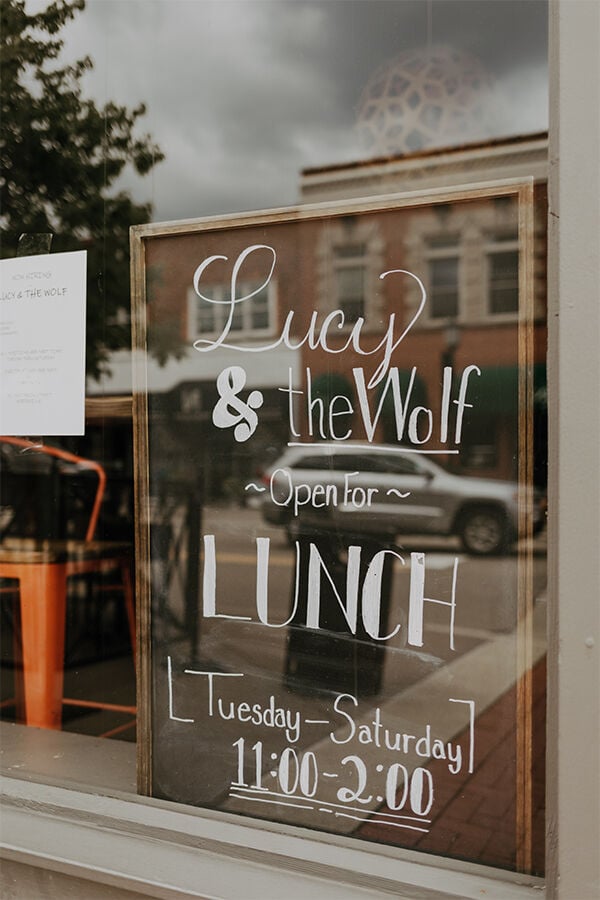 NOW HIRING
LUCY & THE WOLF
Lucy
& the Wolf
~ Open For ~
LUNCH
[Tuesday - Saturday]
11:00 - 2:00